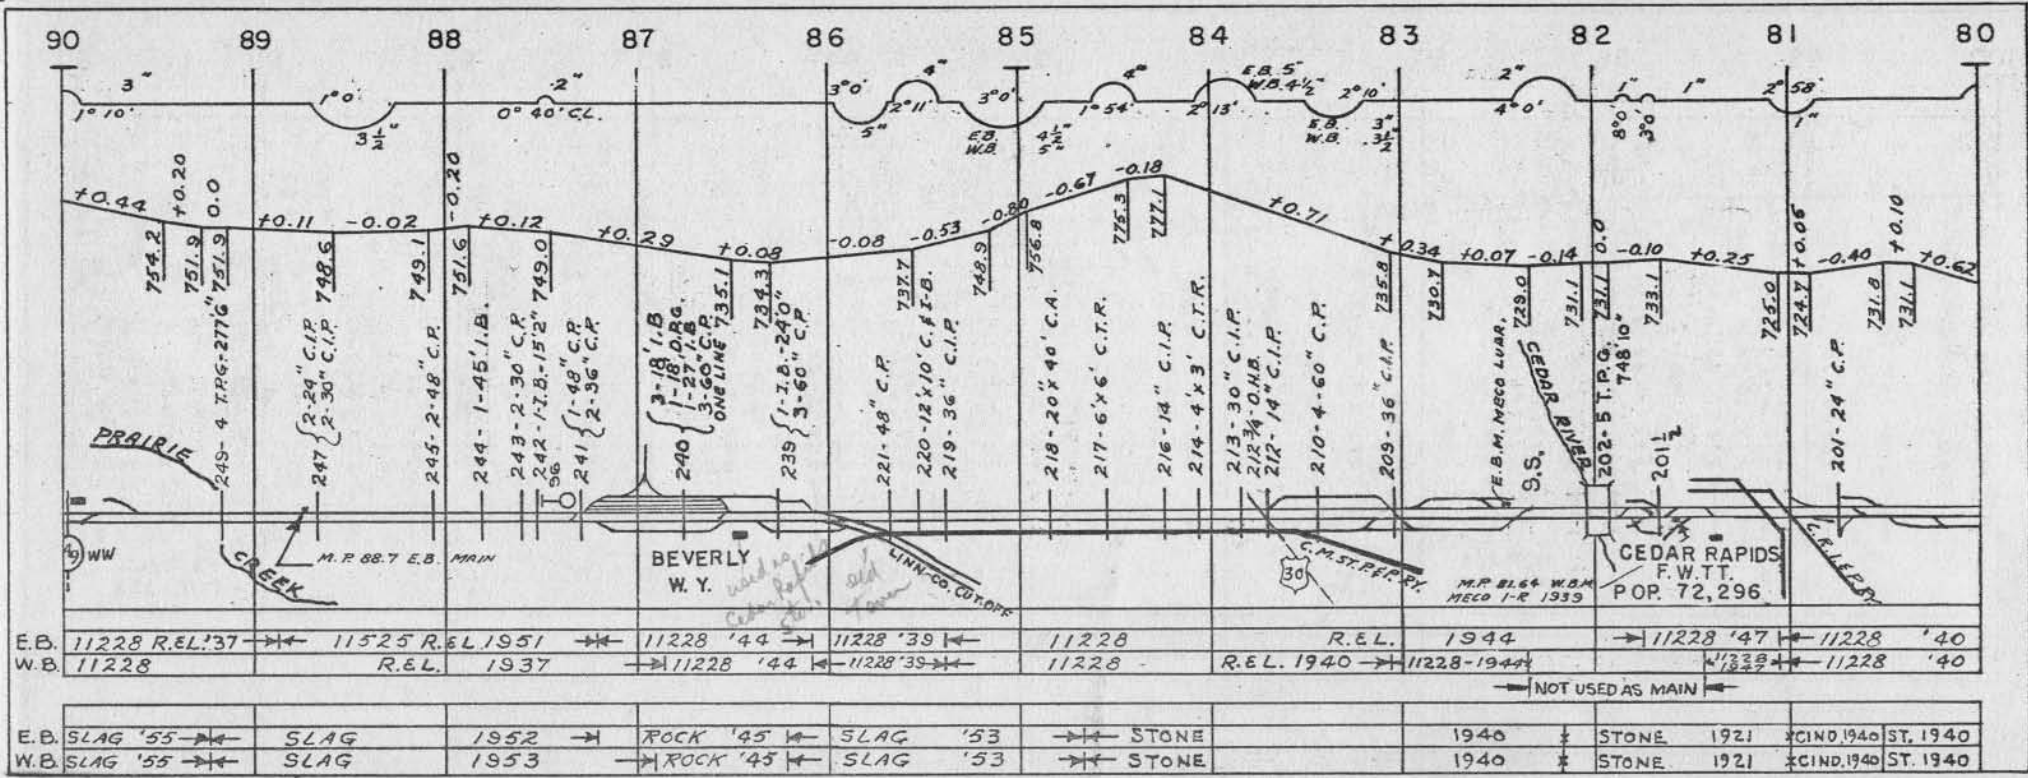 90 89 88 87 86 85 84 83 82 81 80
3" 1°0' 2" 3°0' 4" 3°0' 4" E.B. 5" 2°10' 2" 1" 1" 2°58'
W.B. 4½"
1°10' 3½" 0°40' CL. 5" 2°11' E.B. 4½" 1°54' 2°13' E.B. 3" 4°0' 8°0' 3°0' 1"
W.B. 5" W.B. 3½"
+0.44 +0.20 0.0 +0.11 -0.02 -0.20 +0.12 +0.29 +0.08 -0.08 -0.53 -0.80 -0.67 -0.18 +0.71 +0.34 +0.07 -0.14 0.0 -0.10 +0.25 +0.06 -0.40 +0.10 +0.62
754.2 751.9 751.9 748.6 749.1 751.6 749.0 735.1 734.3 737.7 748.9 756.8 775.3 777.1 735.8 730.7 729.0 731.1 731.1 733.1 725.0 724.7 731.8 731.1
249-4 T.P.G.-277'6"
247 { 2-24" C.I.P.
2-30" C.I.P.
245-2-48" C.P.
244-1-45' I.B.
243-2-30" C.P.
242-1-I.B.-15'2"
96
241 { 1-48" C.P.
2-36" C.P.
240 { 3-18' I.B
1-18' D.P.G.
1-27' I.B.
3-60" C.P.
ONE LINE
239 { 1-I.B.-24'0"
3-60" C.P.
221-48" C.P.
220-12'X10' C.& I-B.
219-36" C.I.P.
218-20'X40' C.A.
217-6'X6' C.T.R.
216-14" C.I.P.
214-4'X3' C.T.R.
213-30" C.I.P.
212¾-O.H.B.
212-14" C.I.P.
210-4-60" C.P.
209-36" C.I.P.
E.B.M. MECO LUAR.
S.S.
CEDAR RIVER
202-5 T.P.G.
748'10"
201½
201-24" C.P.
PRAIRIE
CREEK
WW
M.P. 88.7 E.B. MAIN
BEVERLY
W.Y.
old
LINN-CO. CUT-OFF
30
C.M.ST.P.&P. RY.
M.P. 81.64 W.B.M
MECO I-R 1939
CEDAR RAPIDS
F.W.TT.
POP. 72,296
C.R.I.&P. RY.
E.B. 11228 R.EL.'37 11525 R.EL. 1951 11228 '44 11228 '39 11228 R.EL. 1944 11228 '47 11228 '40
W.B. 11228 R.EL. 1937 11228 '44 11228 '39 11228 R.EL. 1940 11228-1944 11228 1947 11228 '40
NOT USED AS MAIN
E.B. SLAG '55 SLAG 1952 ROCK '45 SLAG '53 STONE 1940 STONE 1921 CIND. 1940 ST. 1940
W.B. SLAG '55 SLAG 1953 ROCK '45 SLAG '53 STONE 1940 STONE 1921 CIND. 1940 ST. 1940